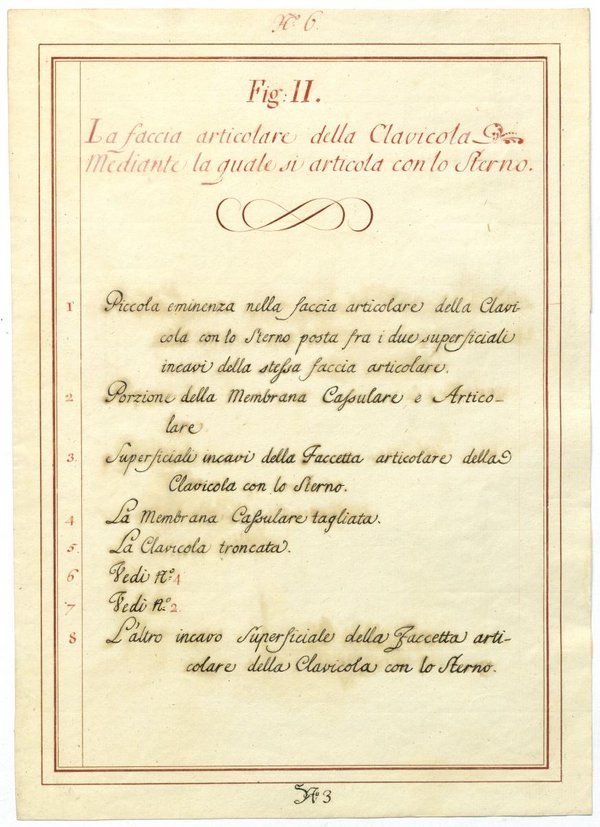 N.º 6
Fig: II.
La faccia articolare della Clavicola
Mediante la quale si articola con lo Sterno.
1 Piccola eminenza nella faccia articolare della Clavi-
cola con lo Sterno posta fra i due superficiali
incavi della stessa faccia articolare.
2 Porzione della Membrana Cassulare e Artico-
lare
3. Superficiali incavi della Faccetta articolare della
Clavicola con lo Sterno.
4 La Membrana Cassulare tagliata.
5. La Clavicola troncata.
6 Vedi N.º 4
7 Vedi N.º 2
8 L'altro incavo Superficiale della Faccetta arti-
colare della Clavicola con lo Sterno.
N.º 3